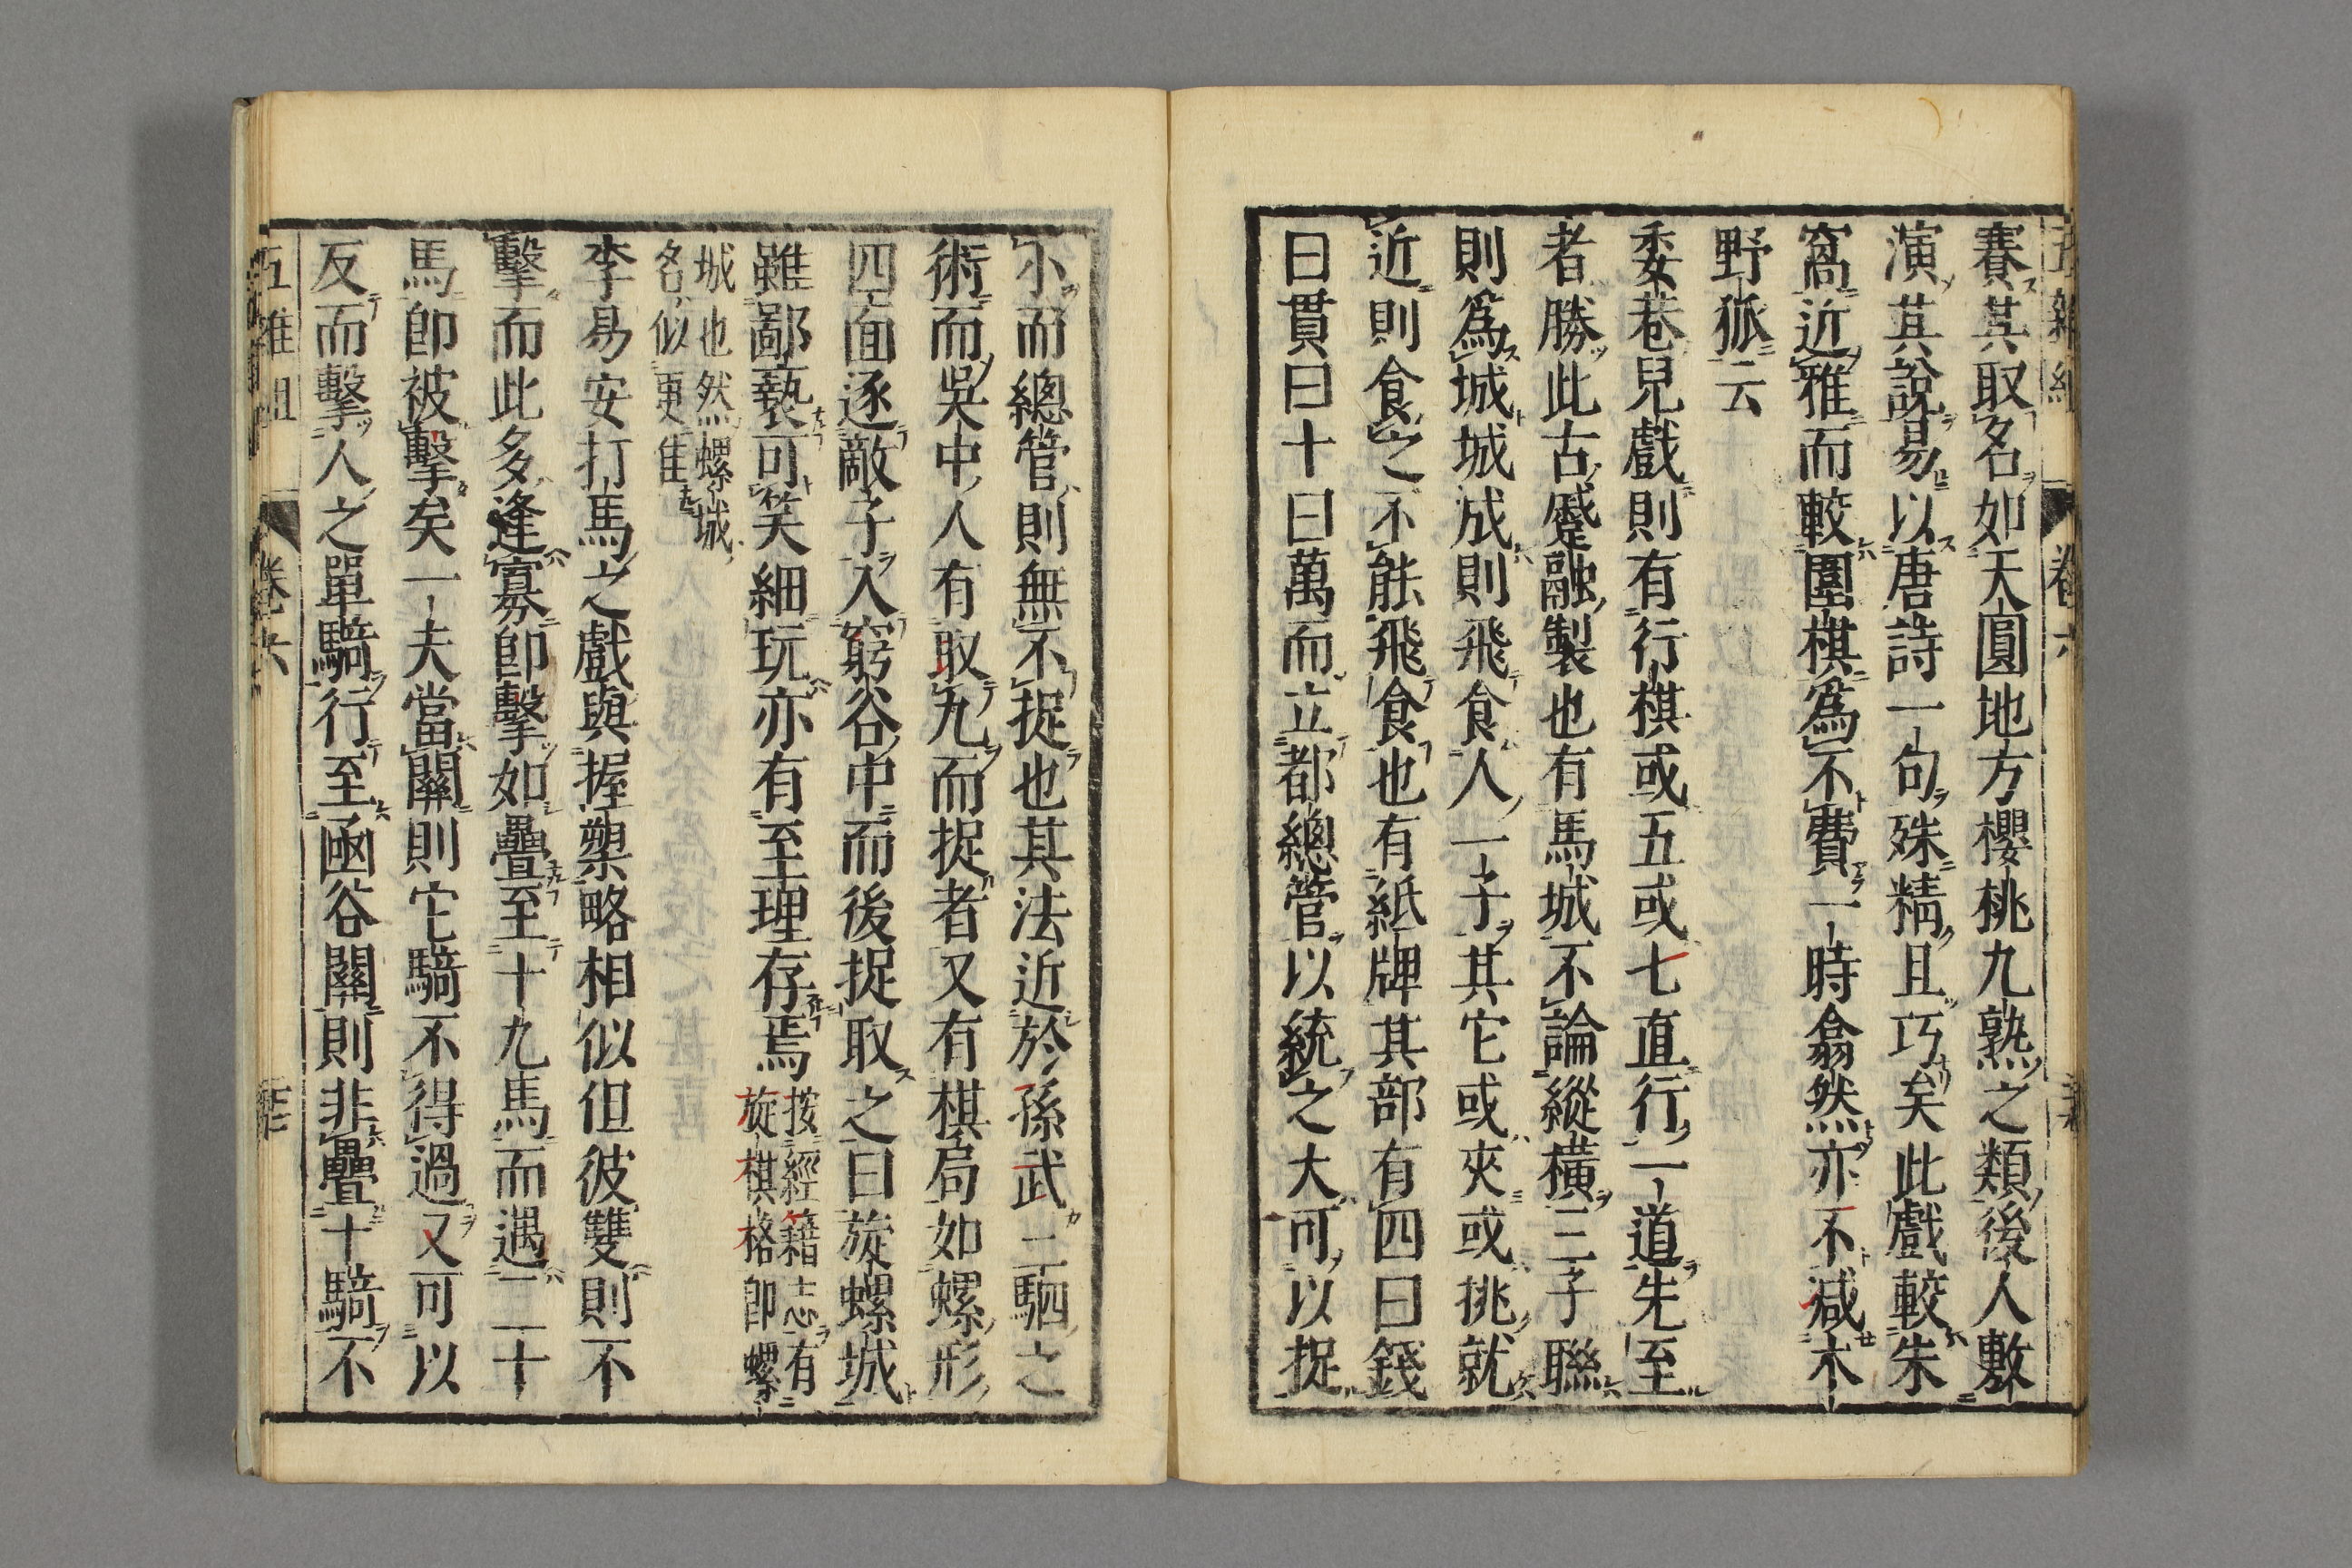 賽其取名如天圓地方櫻桃九熟之類後人敷
演其說易以唐詩一句殊精且巧矣此戲較朱
窩近雅而較圍棋爲不費一時翕然亦不減木
野狐云
委巷兒戲則有行棋或五或七直行一道先至
者勝此古蹙融製也有馬城不論縱橫三子聯
則爲城城成則飛食人一子其它或夾或挑就
近則食之不能飛食也有紙牌其部有四曰錢
曰貫曰十曰萬而立都總管以統之大可以捉
小而總管則無不捉也其法近於孫武三駟之
術而吳中人有取九而捉者又有棋局如螺形
四面逐敵子入窮谷中而後捉取之曰旋螺城
雖鄙褻可笑細玩亦有至理存焉
按經籍志有
旋棋格即螺
城也然螺城
名似更佳
李易安打馬之戲與握槊略相似但彼雙則不
擊而此多逢寡即擊如疊至十九馬而遇二十
馬即被擊矣一夫當關則它騎不得過又可以
反而擊人之單騎行至函谷關則非疊十騎不
五雜組
卷六